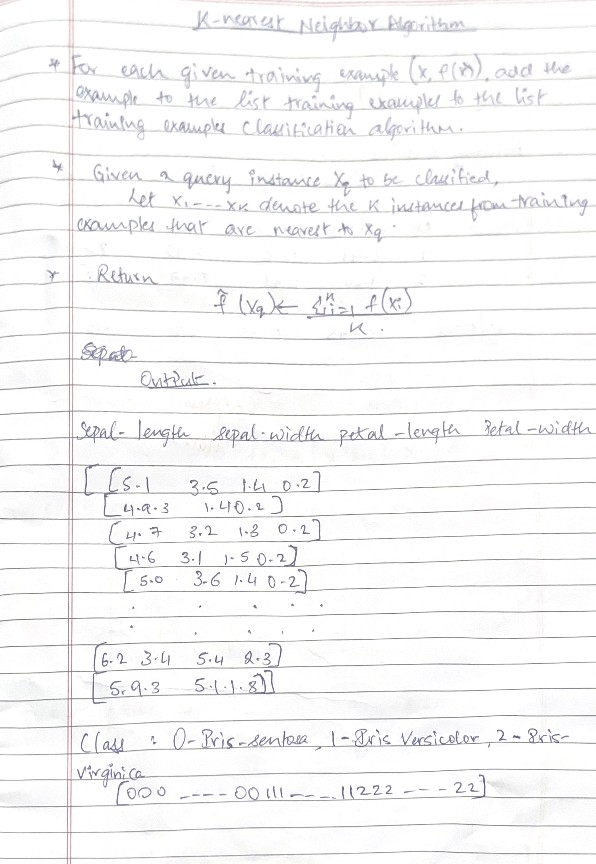 K-nearest Neighbor Algorithm
* For each given training example (x, f(x)), add the
example to the list training examples to the list
training examples Classification algorithm.
* Given a query instance Xq to be classified,
Let x1---xk denote the K instances from training
examples that are nearest to Xq.
* Return
f̂ (Xq) ← Σᵏi=1 f(xi)
K.
Output.
Sepal-length sepal-width petal-length Petal-width
[ [5.1 3.5 1.4 0.2]
[4.9.3 1.40.2]
[4.7 3.2 1.3 0.2]
[4.6 3.1 1.5 0.2]
[5.0 3.6 1.4 0.2]
. . . . .
. . . . .
[6.2 3.4 5.4 2.3]
[5.9.3 5.1.1.8]]
Class : 0-Iris-sentosa, 1-Iris Versicolor, 2-Iris-
virginica
[000 ---- 00111 --- .11222 --- 22]